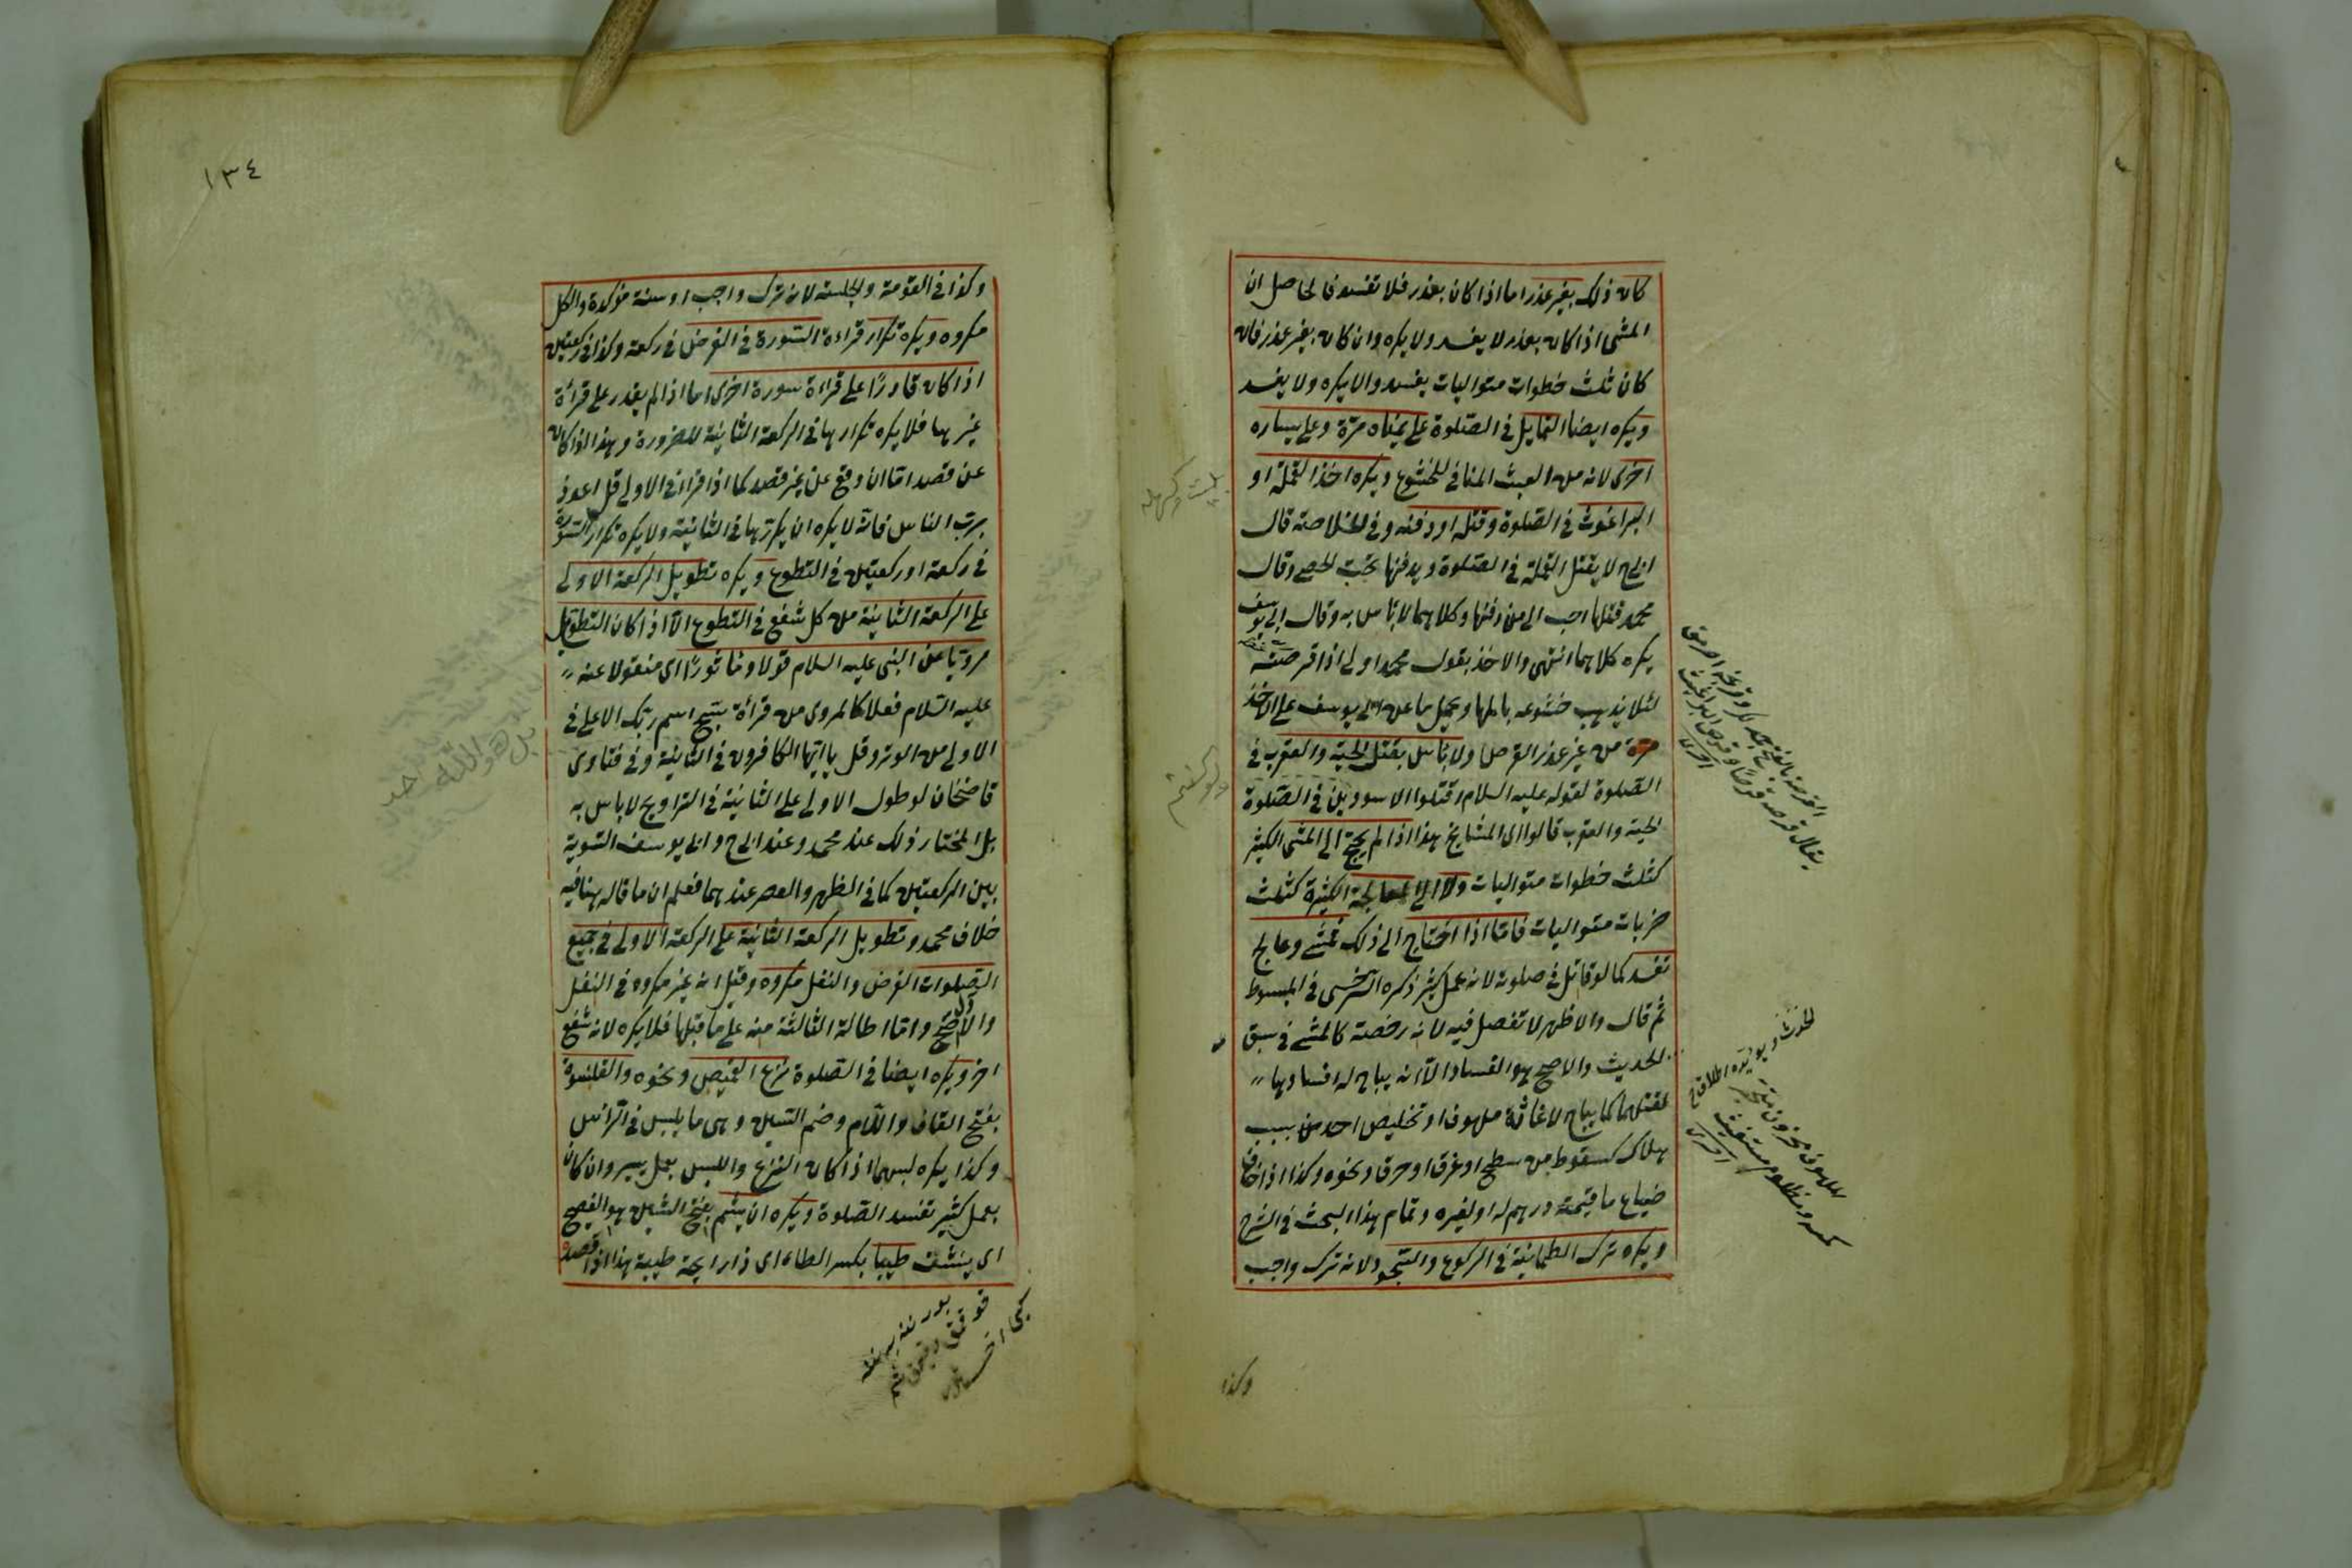 كان ذلك بغير عذر اما اذا كان بعذر فلا تفسد فالحاصل ان
المشى اذا كان بعذر لا يفسد ولا يكره وان كان بغير عذر فان
كان ثلث خطوات متواليات يفسد والا يكره ولا يفسد
ويكره ايضا التمايل في الصلوة على يمناه مرة وعلى يساره
اخرى لانه من العبث المنافي للخشوع ويكره اخذ القملة او
البراغوث في الصلوة وقتله او دفنه وفي الخلاصة قال
ابى ح لا يقتل القملة في الصلوة ويدفنها تحت الحصى وقال
محمد قتلها احب الى من دفنها وكلاهما لا باس به وقال ابى يوسف
يكره كلاهما انتهى والاخذ بقول محمد اولى اذا قرصته
لئلا يذهب خشوعه بالمها ويحمل ما عن ابى يوسف على الاخذ
من غير عذر القرص ولا باس بقتل الحية والعقرب في
الصلوة لقوله عليه السلام اقتلوا الاسودين في الصلوة
الحية والعقرب قالوا اى المشايخ هذا اذا لم يحتج الى المشى الكثير
كثلث خطوات متواليات ولا الى المعالجة الكثيرة كثلث
ضربات متواليات فاما اذا احتاج الى ذلك فمشى وعالج
تفسد كما لو قاتل في صلوته لانه عمل كثير ذكره السرخسى في المبسوط
ثم قال والاظهر لا تفصل فيه لانه رخصة كالمشى في سبق
الحديث والاصح هو الفساد الا انه يباح له افسادها
لقتلهما كما يباح لاغاثة ملهوف او تخليص احد من سبب
هلاك كسقوط من سطح او غرق او حرق ونحوه وكذا اذا خاف
ضياع ما قيمته درهم له او لغيره وتمام هذا البحث في الشرح
ويكره ترك الطمانينة في الركوع والسجود لانه ترك واجب
وكذا
١٣٤
وكذا في القومة والجلسة لانه ترك واجب او سنة مؤكدة والكل
مكروه ويكره تكرار قراءة السورة في الفرض في ركعة وكذا في ركعتين
اذا كان قادرًا على قراءة سورة اخرى اما اذا لم يقدر على قرأة
غيرها فلا يكره تكرارها في الركعة الثانية للضرورة وهذا اذا كان
عن قصد اما ان وقع عن غير قصد كما اذا قرا في الاولى قل اعوذ
برب الناس فانه لا يكره ان يكررها في الثانية ولا يكره تكرار السورة
في ركعة او ركعتين في التطوع ويكره تطويل الركعة الاولى
على الركعة الثانية من كل شفع في التطوع الا اذا كان التطويل
مرويا عن النبى عليه السلام قولا وماثورًا اى منقولا عنه
عليه السلام فعلا كالمروى من قرأة سبح اسم ربك الاعلى في
الاولى من الوتر وقل يا ايها الكافرون في الثانية وفي فتاوى
قاضخان لو طول الاولى على الثانية في التراويح لا باس به
بل المختار ذلك عند محمد وعند ابى ح وابى يوسف التسوية
بين الركعتين كما في الظهر والعصر عندهما فعلم ان ما قاله هنا فيه
خلاف محمد وتطويل الركعة الثانية على الركعة الاولى في جميع
الصلوات الفرض والنفل مكروه وقيل انه غير مكروه في النفل
والاصح واما اطالة الثالثة منه على ما قبلها فلا يكره لانه شفع
اخر ويكره ايضا في الصلوة نزع القميص ونحوه والقلنسوة
بفتح القاف واللام وضم السين وهى ما يلبس في الراس
وكذا يكره لبسهما اذا كان النزع واللبس بعمل يسير وان كان
بعمل كثير تفسد الصلوة ويكره ان يشم بفتح الشين هو الفصيح
اى ينشق طيبا بكسر الطاء اى ذا رايحة طيبة هذا اذا قصده